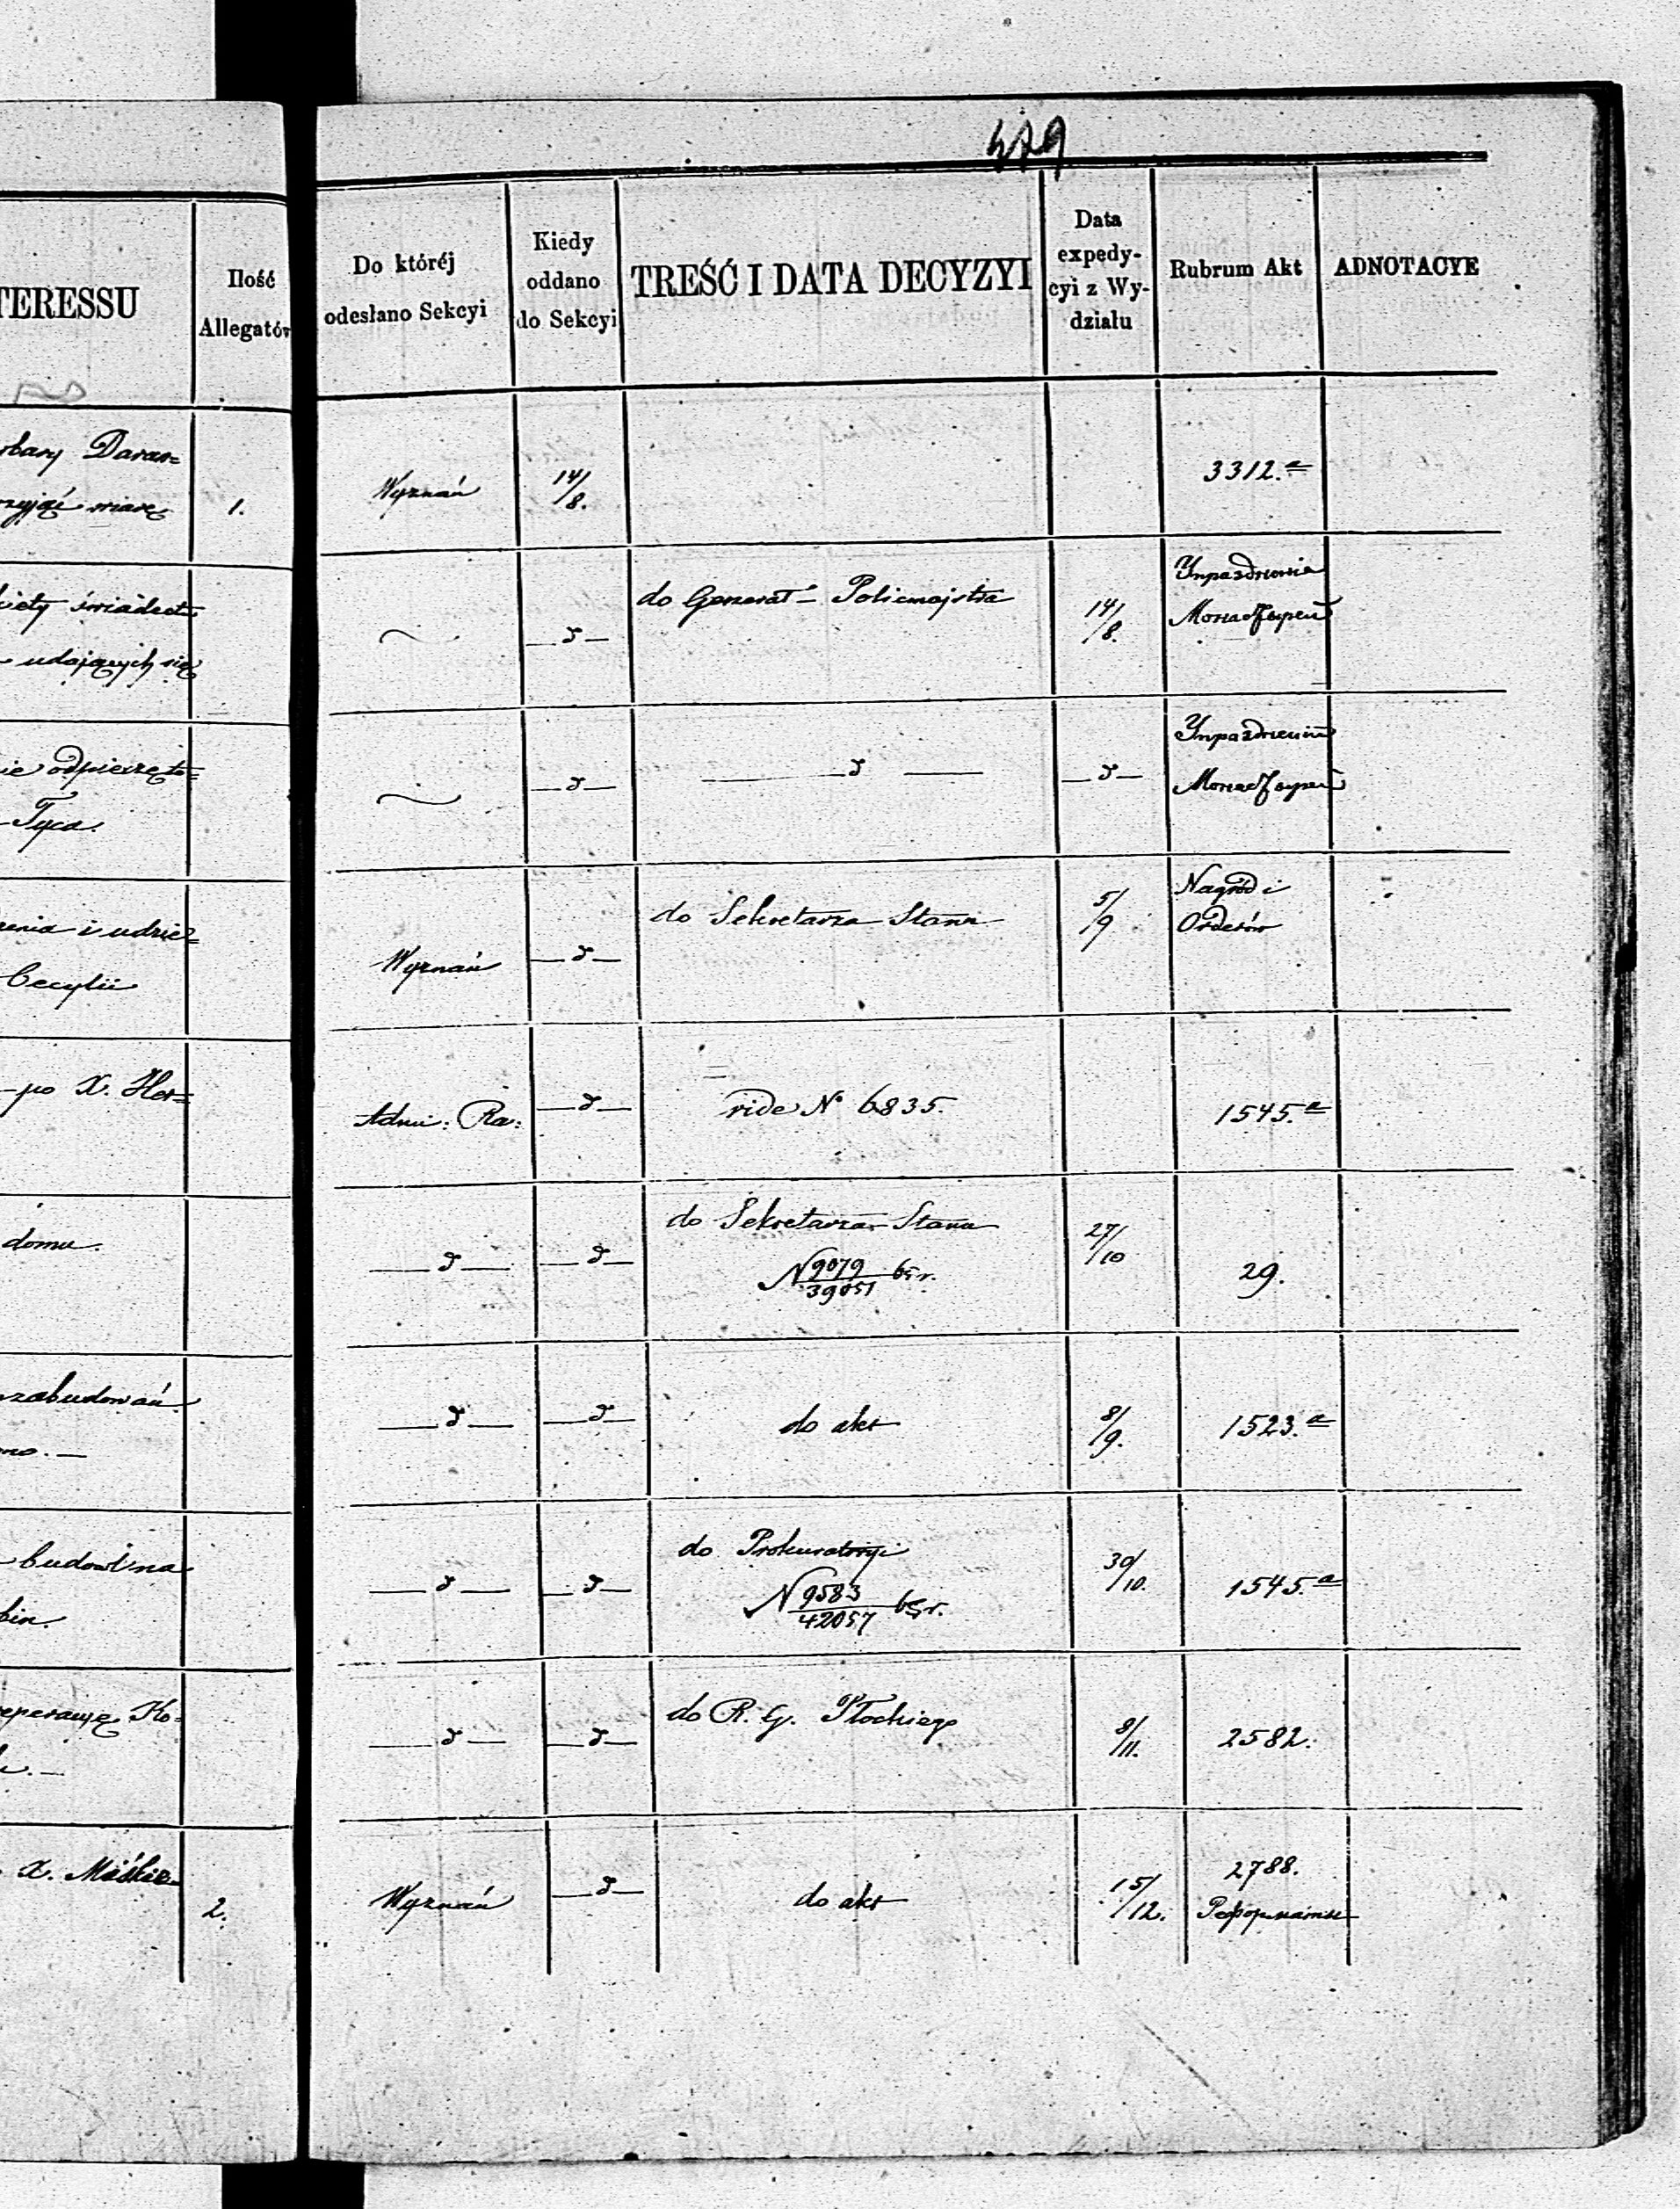 479
TERESSU
Ilość
Allegatów
Do któréj
odesłano Sekcyi
Kiedy
oddano
do Sekcyi
TREŚĆ I DATA DECYZYI
Data
expedy-
cyi z Wy-
działu
Rubrum Akt
ADNOTACYE
rbary Daran=
rzyjąć wiarę
1.
Wyznań
14/8.
3312.a
świadect
udających się
do Generał Policmajstra
14/8.
Упразднения
Монастырей
ie odpieczęto=
Tyca.
d
d
d
Упразднения
Монастырей
zenia i udzie=
Cecylii
Wyznań
d
do Sekretarza Stanu
5/9
Nagród i
Orderów
po X. Her=
Adm: Ra:
d
vide N° 6835.
1545.a
domu.
d
d
do Sekretarza Stanu
N 9079/39051 65 r.
27/10
29.
zabudowań
no. —
d
d
do akt
8/9.
1523.a
budowl na
bin.
d
d
do Prokuratoryi
N 9583/42057 65 r.
30/10.
1545.a
reperacyę Ko=
d
d
do R. G. Płockiego
8/11.
2582.
X. Miśkie
2.
Wyznań
d
do akt
15/12.
2788.
Реформаты